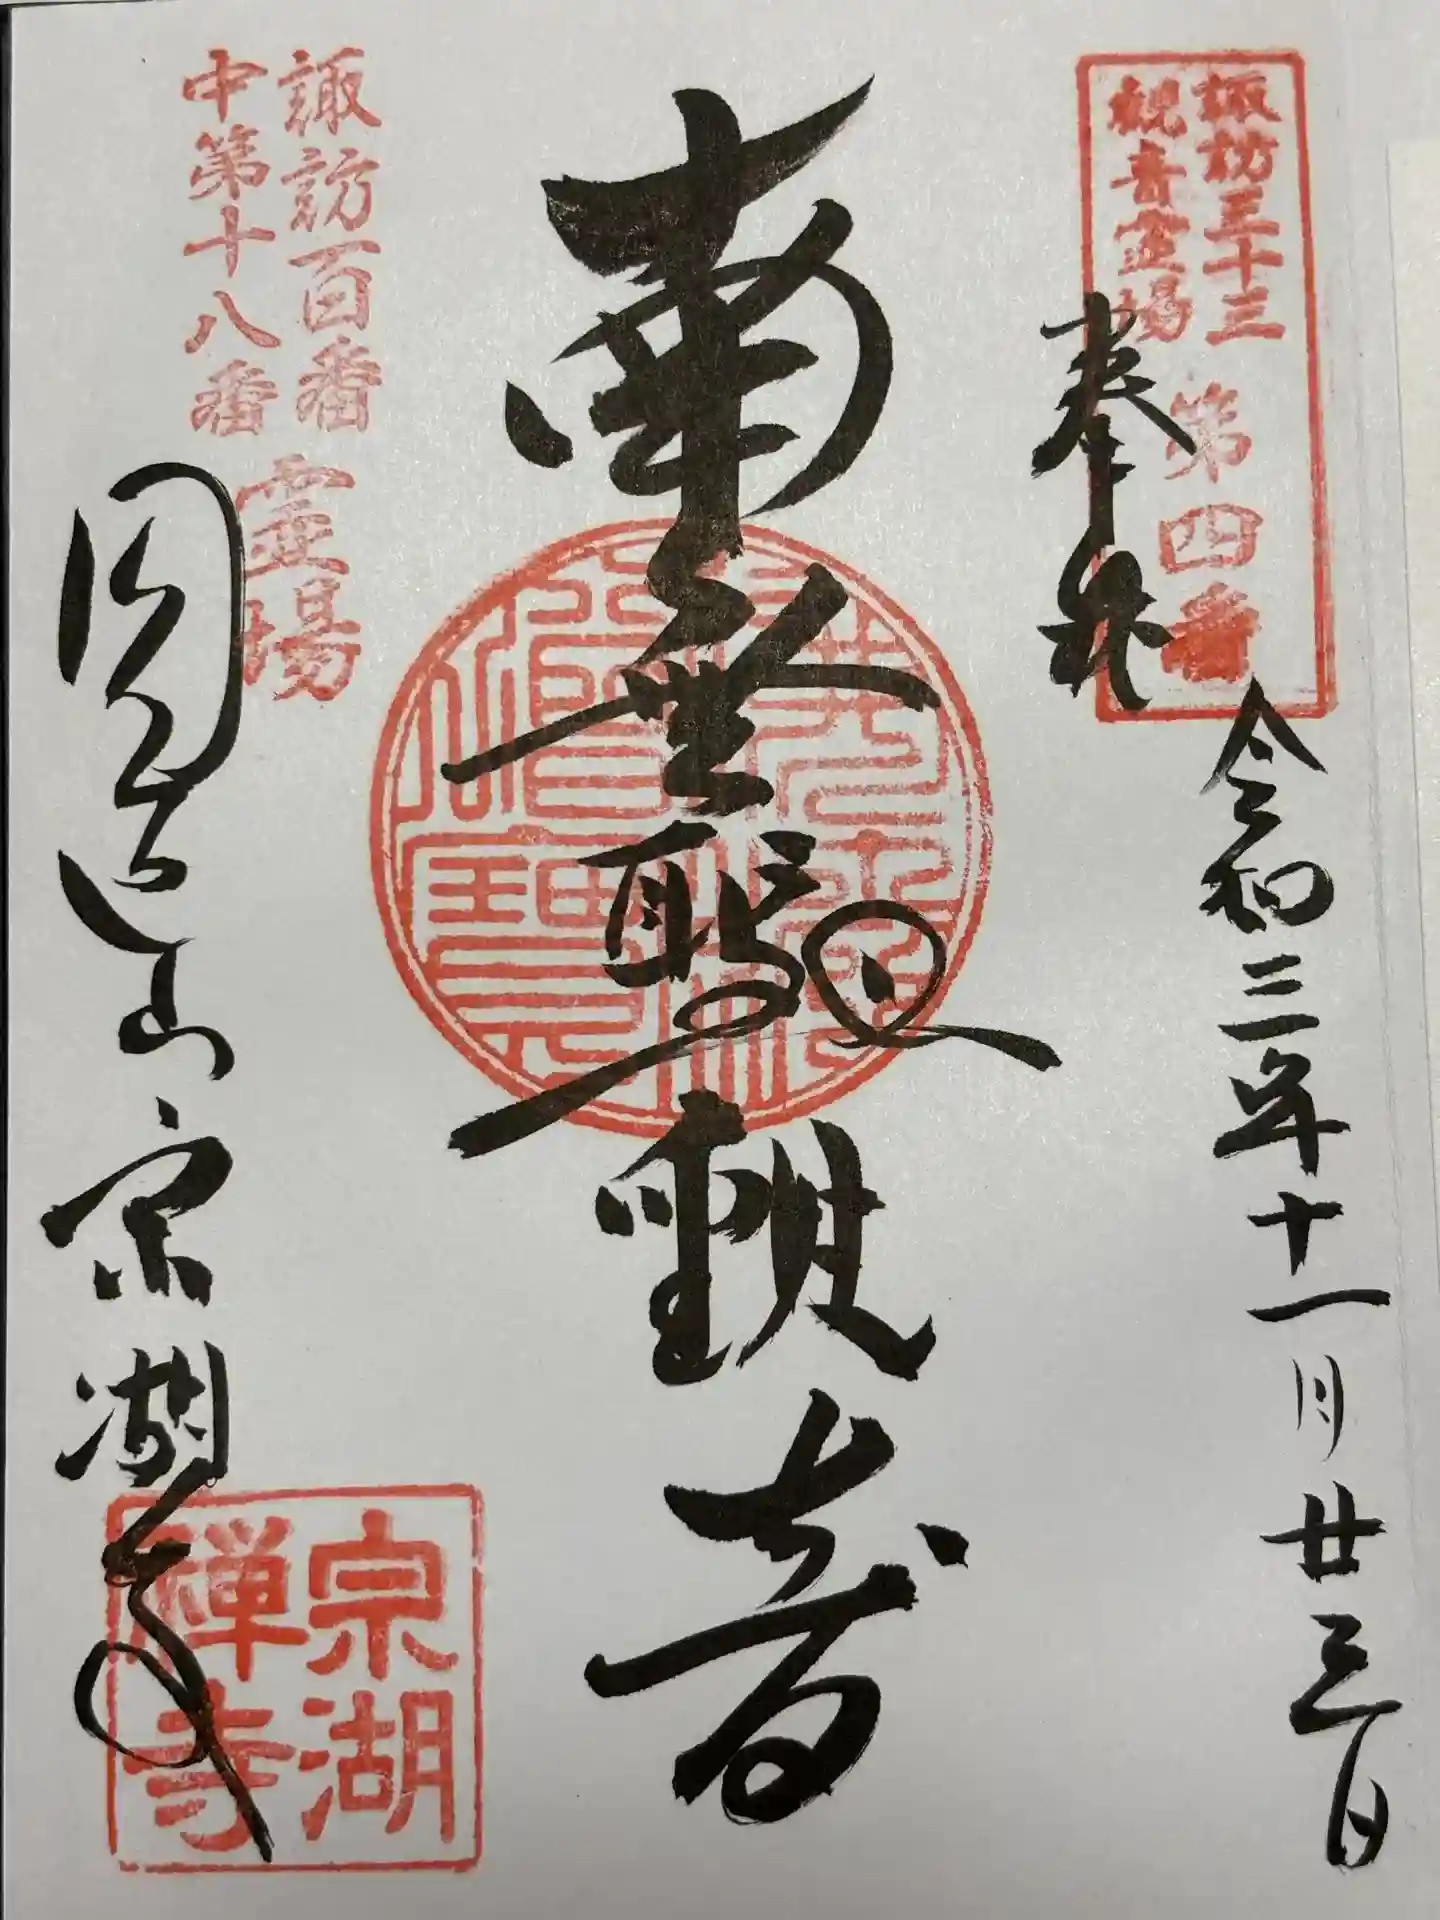 諏訪三十三
観音霊場
第四番
奉拝
令和三年十一月廿三日
南無聖観音
諏訪百番
中第十八番
霊場
円通山宗湖寺
宗湖
禅寺